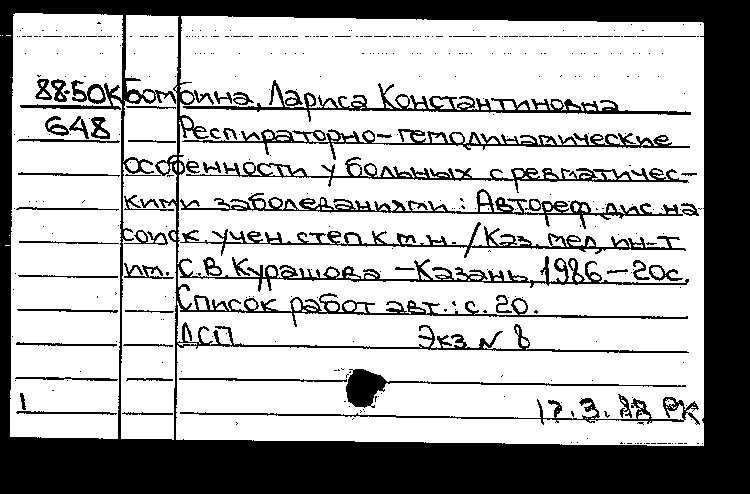 88-50К Бомбина, Лариса Константиновна
648 Респираторно-гемодинамические
особенности у больных с ревматичес-
кими заболеваниями: Автореф. дис. на
соиск. учен. степ. к.м.н. / Каз. мед. ин-т
им. С.В. Курашова - Казань, 1986. - 20с.
Список работ авт.: с. 20.
ДСП Экз N 8
1 17.3.88 РК.